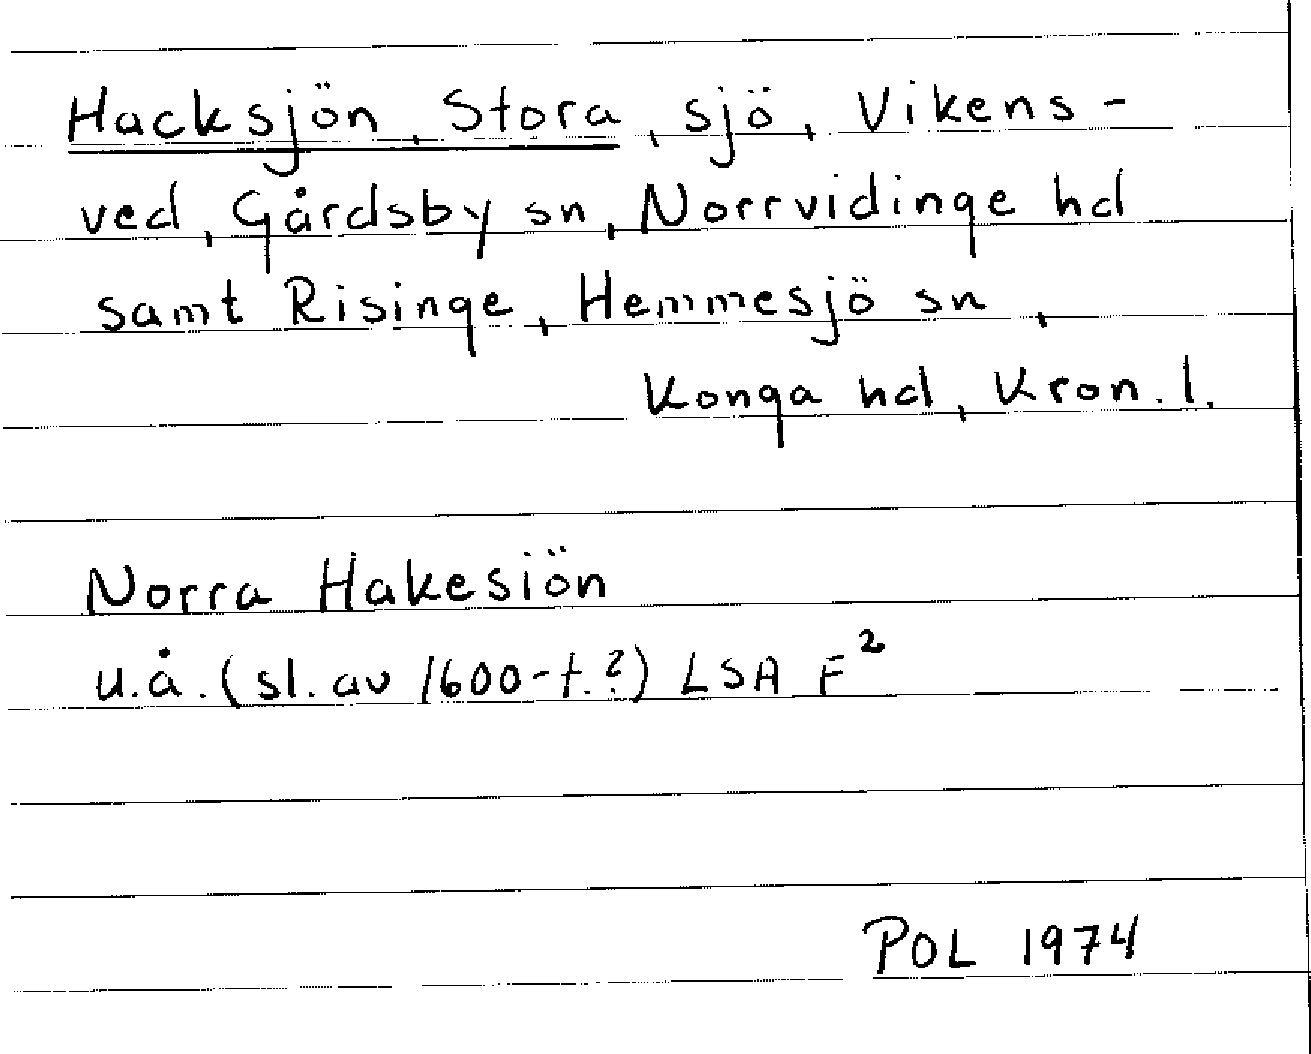 Hacksjön, Stora, sjö, Vikens-
ved, Gårdsby sn, Norrvidinge hd
samt Risinge, Hemmesjö sn,
Konga hd, Kron. l.
Norra Hakesiön
u.å. (sl. av 1600-t.?) LSA F²
POL 1974